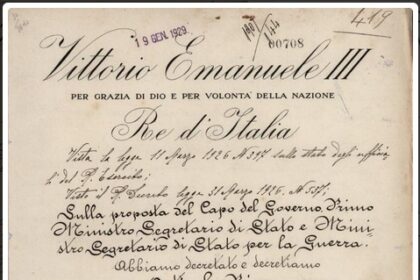 19 GEN. 1929
144
00708
419
Vittorio Emanuele III
PER GRAZIA DI DIO E PER VOLONTÀ DELLA NAZIONE
Re d'Italia
Vista la legge 11 Marzo 1926 N 397 sullo stato degli ufficia
li del R. Esercito;
Visto il R. Decreto legge 31 Marzo 1926. N. 537;
Sulla proposta del Capo del Governo Primo
Ministro Segretario di Stato e Mini
stro Segretario di Stato per la Guerra.
Abbiamo decretato e decretiamo